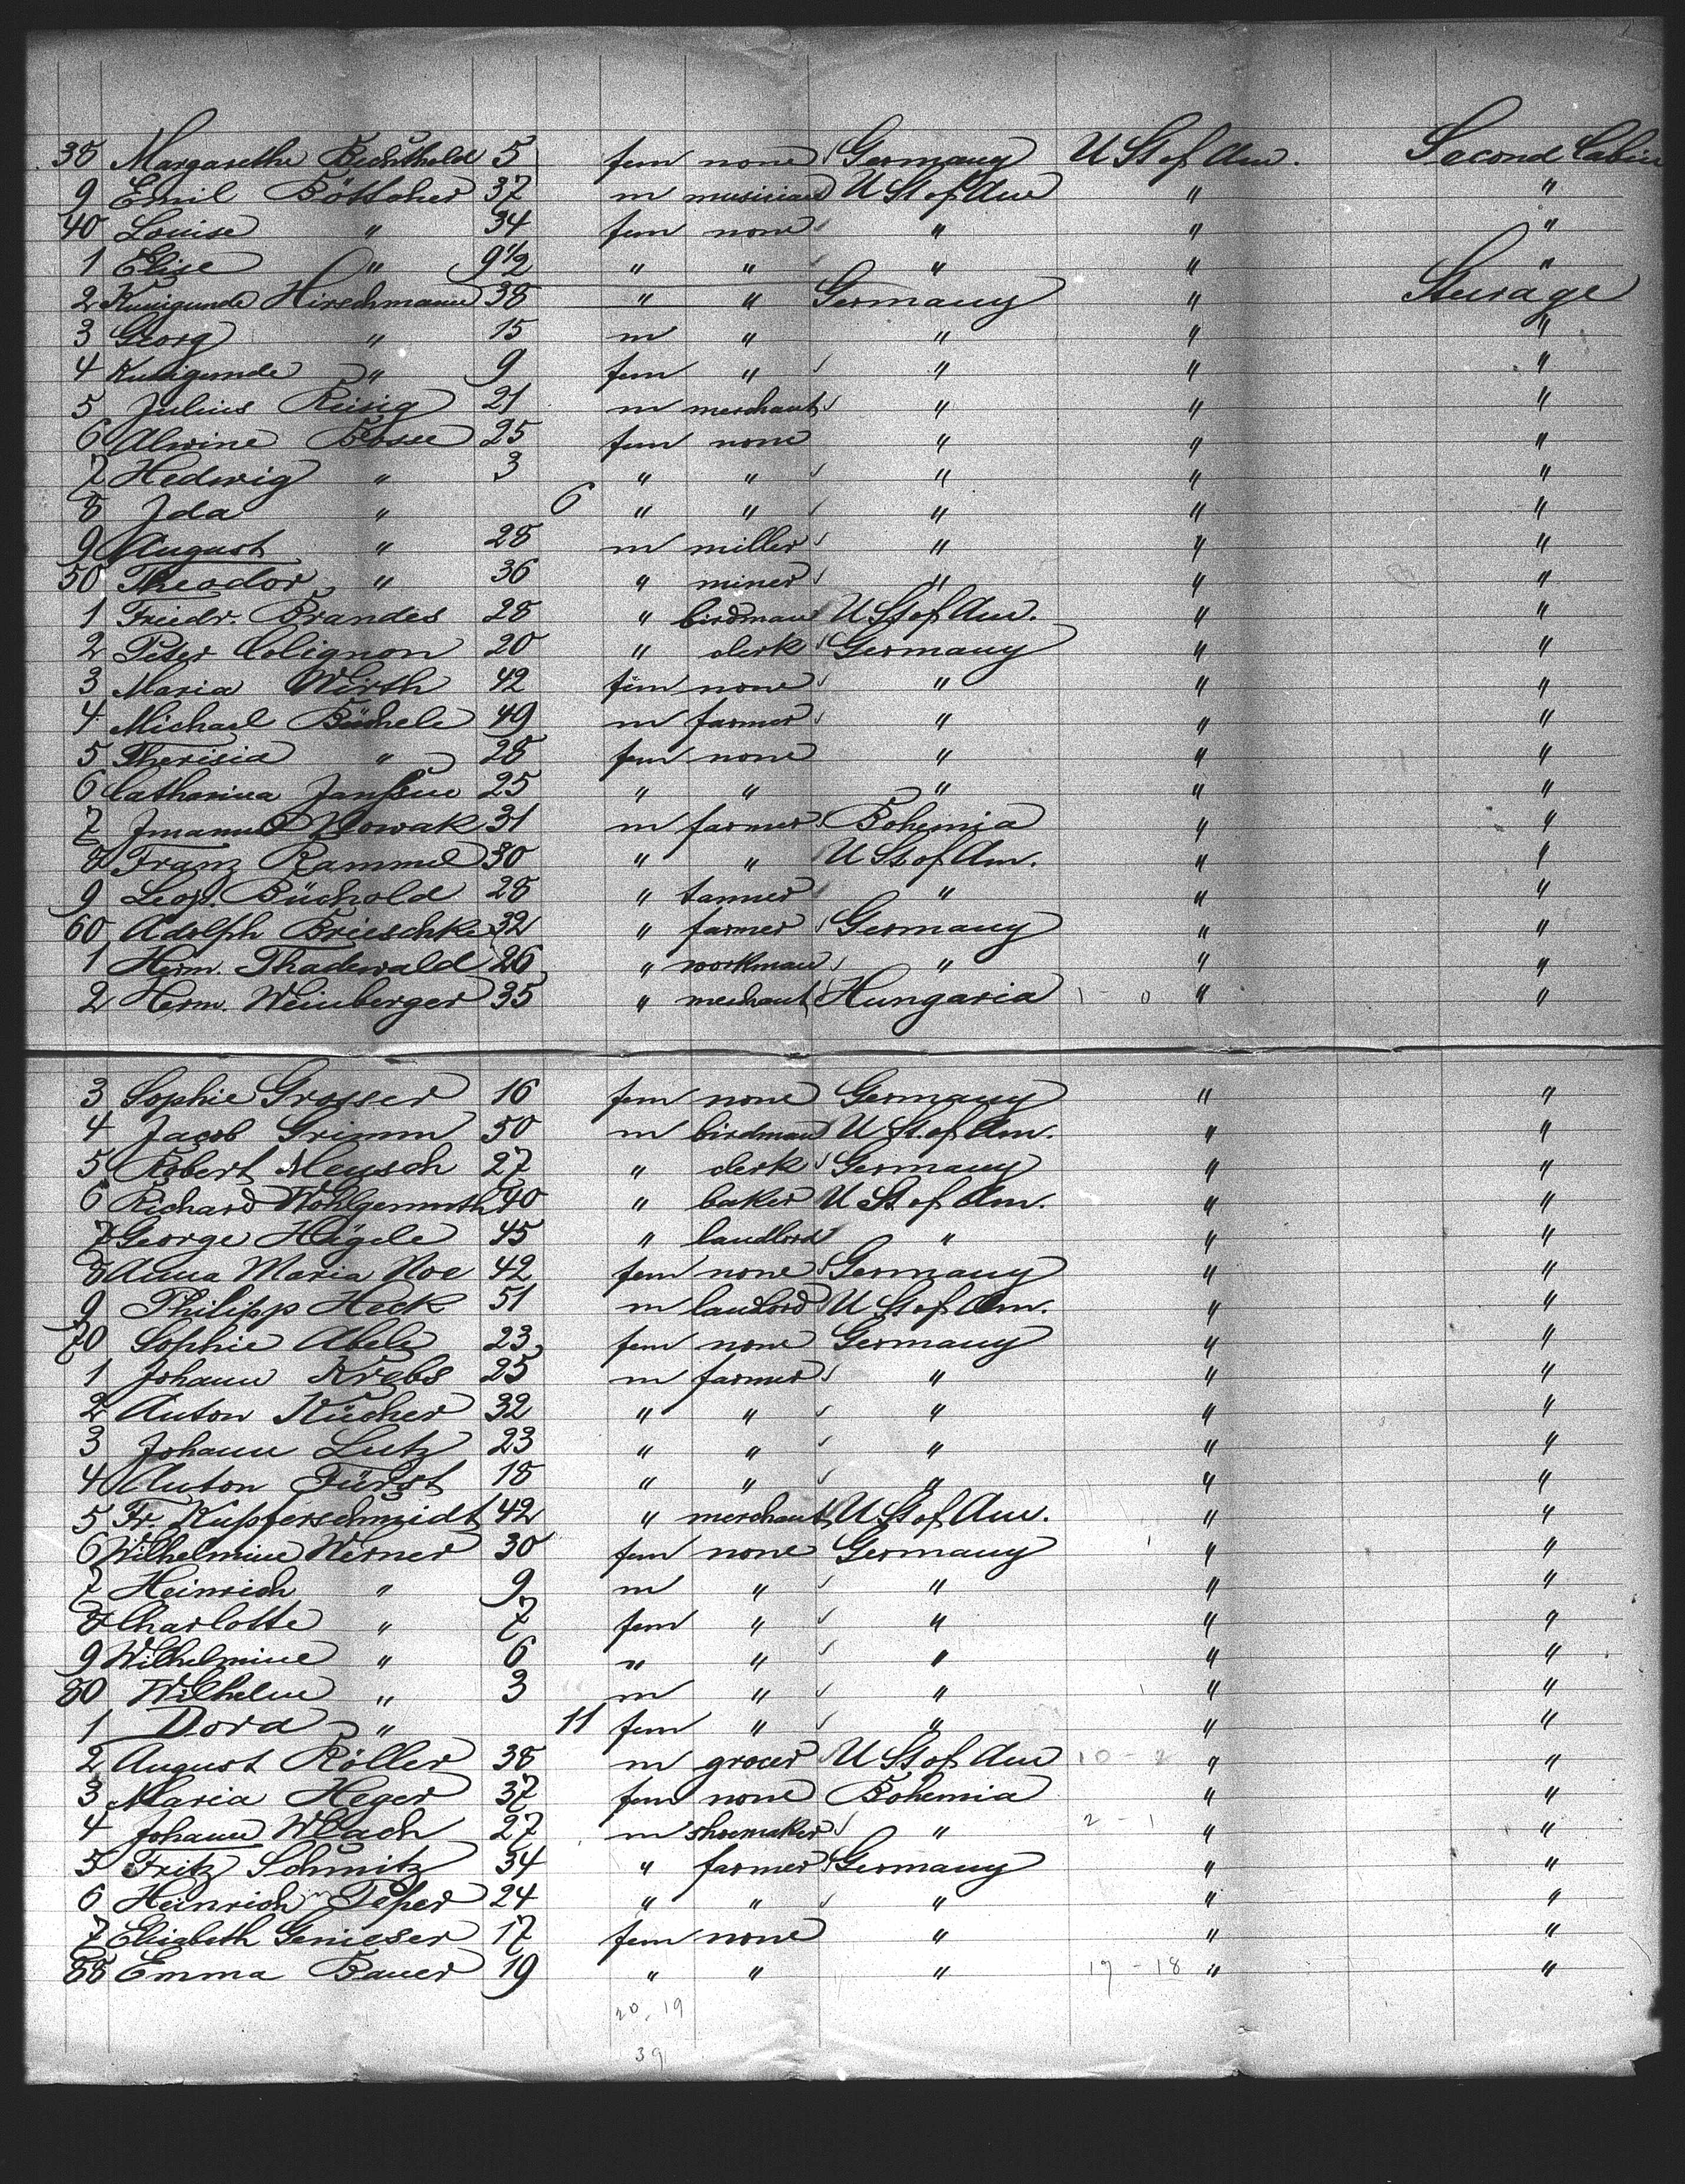 38 Margarethe Bechthold 5 fem none Germany U St of Am. Second Cabin
9 Emil Böttcher 37 m musician U St of Am " "
40 Louise " 34 fem none " " "
1 Elise " 9 1/2 " " " " "
2 Kunigunde Hirschmann 38 " " Germany " Steerage
3 Georg " 15 m " " " "
4 Kunigunde " 9 fem " " " "
5 Julius Reisig 21 m merchant " " "
6 Alwine Bosse 25 fem none " " "
7 Hedwig " 3 " " " " "
8 Ida " 6 " " " " "
9 August " 28 m miller " " "
50 Theodor " 36 " miner " " "
1 Friedr. Brandes 28 " birdman U St of Am. " "
2 Peter Colignon 20 " clerk Germany " "
3 Maria Wirth 42 fem none " " "
4 Michael Büchele 49 m farmer " " "
5 Theresia " 28 fem none " " "
6 Catharina Janssen 25 " " " " "
7 Imanuel Nowak 31 m farmer Bohemia " "
8 Franz Rammel 30 " " U St of Am. " "
9 Leop. Büchold 28 " tanner " " "
60 Adolph Brieschke 32 " farmer Germany " "
1 Herm. Thadewald 26 " workman " " "
2 Herm. Weinberger 35 " merchant Hungaria 1 - 0 " "
3 Sophie Grosser 16 fem none Germany " "
4 Jacob Grimm 50 m birdman U St. of Am. " "
5 Robert Meusch 27 " clerk Germany " "
6 Richard Wohlgemuth 40 " baker U St of Am. " "
7 George Hägele 45 " landlord " " "
8 Anna Maria Noe 42 fem none Germany " "
9 Philipp Heck 51 m landlord U St of Am. " "
70 Sophie Abele 23 fem none Germany " "
1 Johann Krebs 25 m farmer " " "
2 Anton Kücher 32 " " " " "
3 Johann Lutz 23 " " " " "
4 Anton Fürst 18 " " " " "
5 Fr. Kupferschmidt 42 " merchant U St of Am. " "
6 Wilhelmine Werner 30 fem none Germany " "
7 Heinrich " 9 m " " " "
8 Charlotte " 7 fem " " " "
9 Wilhelmine " 6 " " " " "
80 Wilhelm " 3 m " " " "
1 Dora " 11 fem " " " "
2 August Röller 38 m grocer U St of Am 10 - 2 " "
3 Maria Heger 37 fem none Bohemia " "
4 Johann Wlach 27 m shoemaker " 2 - 1 " "
5 Fritz Schmitz 34 " farmer Germany " "
6 Heinrich Peper 24 " " " " "
7 Elisabeth Genieser 17 fem none " " "
88 Emma Bauer 19 " " " 17 - 18 " "
20, 19
39